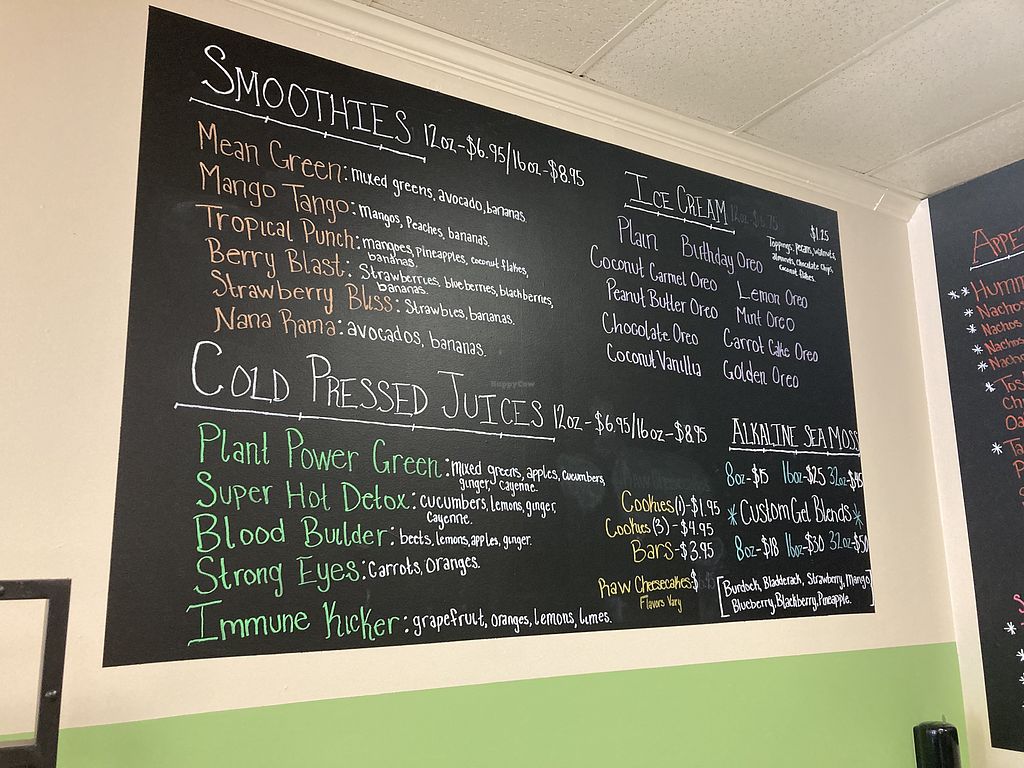 SMOOTHIES 12oz-$6.95/16oz-$8.95
Mean Green: mixed greens, avocado, bananas.
Mango Tango: Mangos, Peaches, bananas.
Tropical Punch: mangoes, pineapples, coconut flakes,
bananas.
Berry Blast: Strawberries, blueberries, blackberries,
bananas.
Strawberry Bliss: Strawbies, bananas.
Nana Rama: avocados, bananas.
COLD PRESSED JUICES 12oz-$6.95/16oz-$8.95
Plant Power Green: mixed greens, apples, cucumbers,
ginger, cayenne.
Super Hot Detox: cucumbers, lemons, ginger,
Cayenne.
Blood Builder: beets, lemons, apples, ginger.
Strong Eyes: Carrots, oranges.
Immune Kicker: grapefruit, oranges, lemons, limes.
ICE CREAM 12oz-$6.75
$1.25
Toppings: pecans, walnuts,
almonds, Chocolate Chips
coconut flakes.
Plain Birthday Oreo
Coconut Carmel Oreo Lemon Oreo
Peanut Butter Oreo Mint Oreo
Chocolate Oreo Carrot Cake Oreo
Coconut Vanillia Golden Oreo
Cookies (1)-$1.95
Cookies (3)-$4.95
Bars-$3.95
Raw Chesecakes: $
Flavors Vary
ALKALINE SEA MOSS
8oz-$15 16oz-$25 32oz-$45
*Custom Gel Blends*
8oz-$18 16oz-$30 32oz-$50
[Burdock, Bladderack, Strawberry, Mango
Blueberry, Blackberry, Pineapple.]
HappyCow
APPE
** Humm
* Nachos
* Nachos
* Nachos
* Nachos
* Tos
Ch
Oa
* Ta